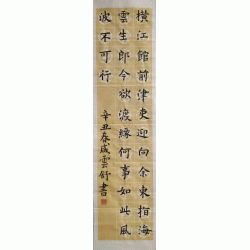 橫江館前津吏迎向余東指海
雲生郎今欲渡緣何事如此風
波不可行
辛丑春歲雲舒書